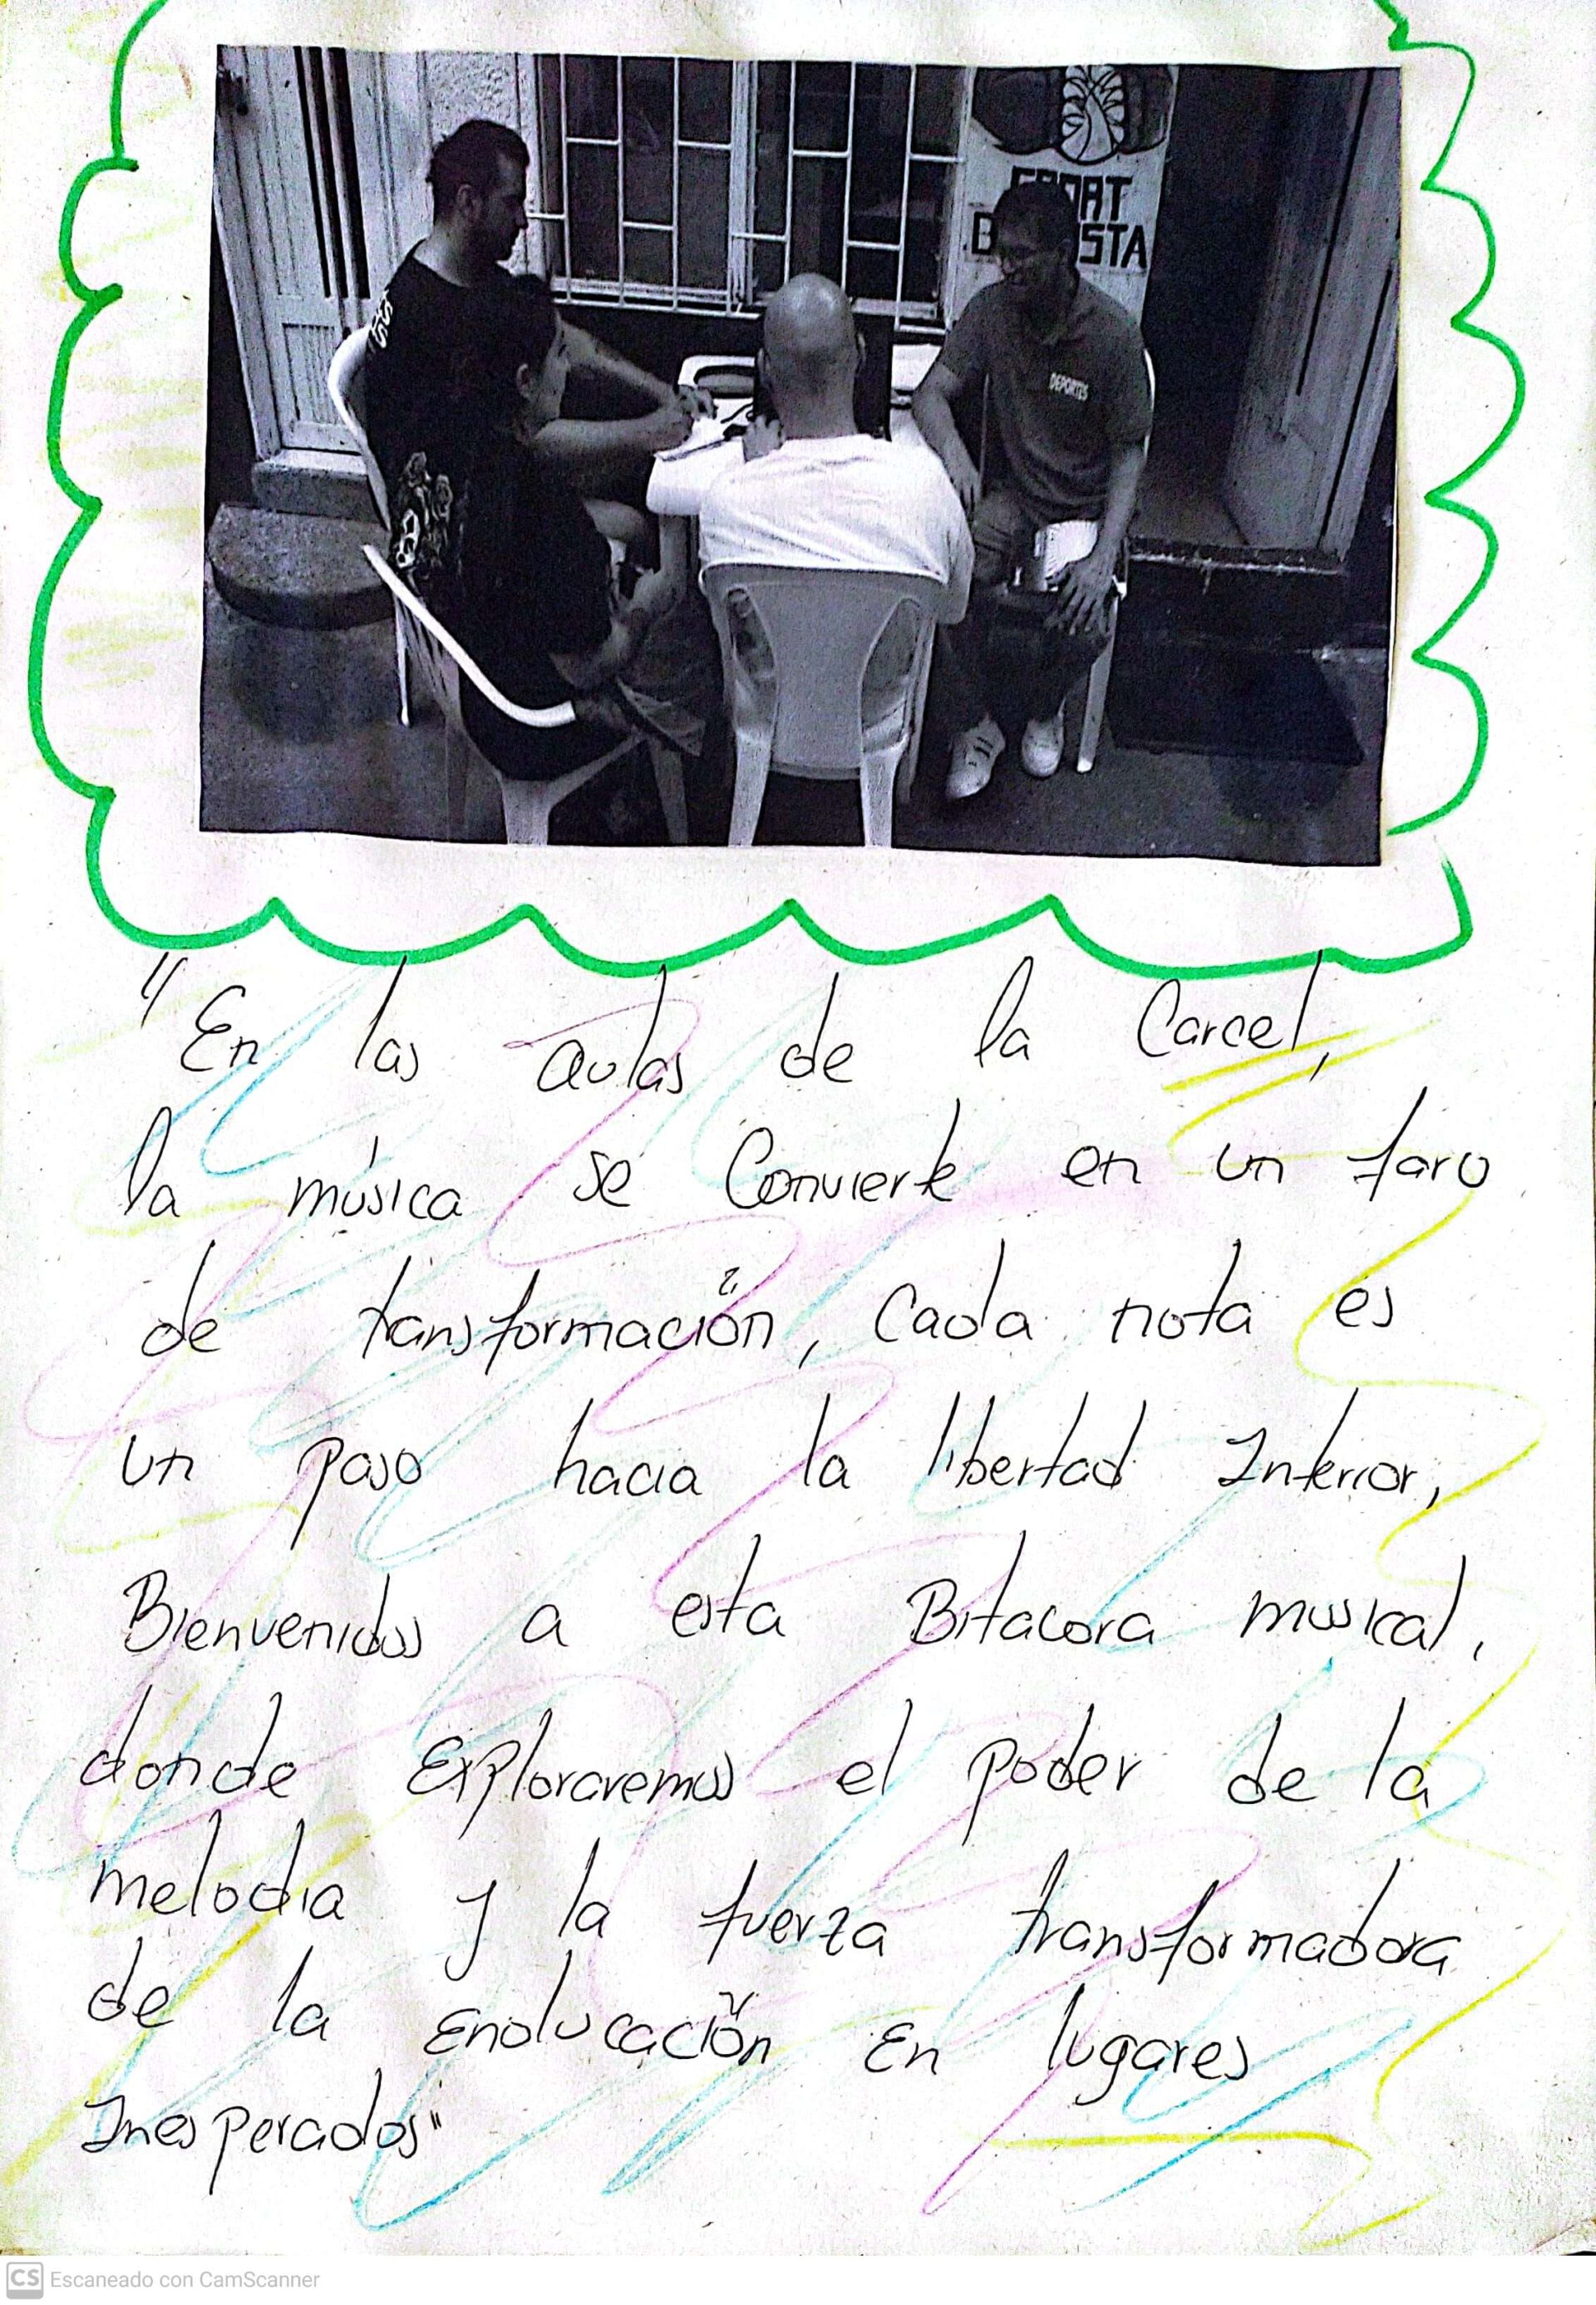 DEPORTES
"En las aulas de la Carcel,
la música se Convierte en un faro
de transformación, Cada nota es
un paso hacia la libertad Interior,
Bienvenidos a esta Bitacora musical,
donde Exploraremos el poder de la
melodia y la fuerza transformadora
de la Enducación En lugares
Inesperados"
CS Escaneado con CamScanner